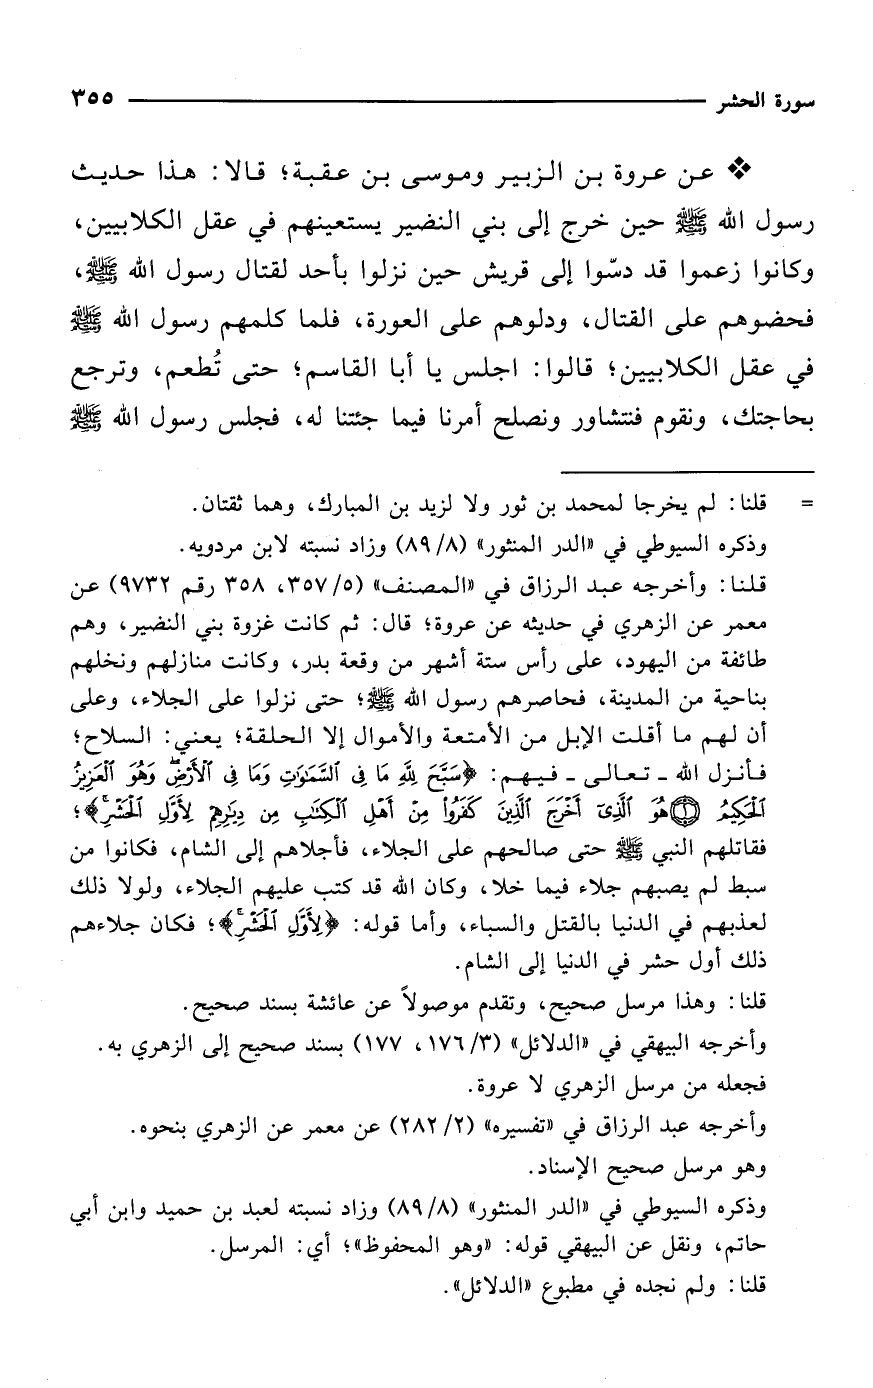 سورة الحشر ٣٥٥
❖ عن عروة بن الزبير وموسى بن عقبة؛ قالا: هذا حديث
رسول الله ﷺ حين خرج إلى بني النضير يستعينهم في عقل الكلابيين،
وكانوا زعموا قد دسّوا إلى قريش حين نزلوا بأحد لقتال رسول الله ﷺ،
فحضوهم على القتال، ودلوهم على العورة، فلما كلمهم رسول الله ﷺ
في عقل الكلابيين؛ قالوا: اجلس يا أبا القاسم؛ حتى تُطعم، وترجع
بحاجتك، ونقوم فنتشاور ونصلح أمرنا فيما جئتنا له، فجلس رسول الله ﷺ
= قلنا: لم يخرجا لمحمد بن ثور ولا لزيد بن المبارك، وهما ثقتان.
وذكره السيوطي في «الدر المنثور» (٨/ ٨٩) وزاد نسبته لابن مردويه.
قلنا: وأخرجه عبد الرزاق في «المصنف» (٥/ ٣٥٧، ٣٥٨ رقم ٩٧٣٢) عن
معمر عن الزهري في حديثه عن عروة؛ قال: ثم كانت غزوة بني النضير، وهم
طائفة من اليهود، على رأس ستة أشهر من وقعة بدر، وكانت منازلهم ونخلهم
بناحية من المدينة، فحاصرهم رسول الله ﷺ؛ حتى نزلوا على الجلاء، وعلى
أن لهم ما أقلت الإبل من الأمتعة والأموال إلا الحلقة؛ يعني: السلاح؛
فأنزل الله ـ تعالى ـ فيهم: ﴿سَبَّحَ لِلَّهِ مَا فِى ٱلسَّمَٰوَٰتِ وَمَا فِى ٱلْأَرْضِۖ وَهُوَ ٱلْعَزِيزُ
ٱلْحَكِيمُ ۝١ هُوَ ٱلَّذِىٓ أَخْرَجَ ٱلَّذِينَ كَفَرُوا۟ مِنْ أَهْلِ ٱلْكِتَٰبِ مِن دِيَٰرِهِمْ لِأَوَّلِ ٱلْحَشْرِۚ﴾؛
فقاتلهم النبي ﷺ حتى صالحهم على الجلاء، فأجلاهم إلى الشام، فكانوا من
سبط لم يصبهم جلاء فيما خلا، وكان الله قد كتب عليهم الجلاء، ولولا ذلك
لعذبهم في الدنيا بالقتل والسباء، وأما قوله: ﴿لِأَوَّلِ ٱلْحَشْرِۚ﴾؛ فكان جلاءهم
ذلك أول حشر في الدنيا إلى الشام.
قلنا: وهذا مرسل صحيح، وتقدم موصولاً عن عائشة بسند صحيح.
وأخرجه البيهقي في «الدلائل» (٣/ ١٧٦، ١٧٧) بسند صحيح إلى الزهري به.
فجعله من مرسل الزهري لا عروة.
وأخرجه عبد الرزاق في «تفسيره» (٢/ ٢٨٢) عن معمر عن الزهري بنحوه.
وهو مرسل صحيح الإسناد.
وذكره السيوطي في «الدر المنثور» (٨/ ٨٩) وزاد نسبته لعبد بن حميد وابن أبي
حاتم، ونقل عن البيهقي قوله: «وهو المحفوظ»؛ أي: المرسل.
قلنا: ولم نجده في مطبوع «الدلائل».